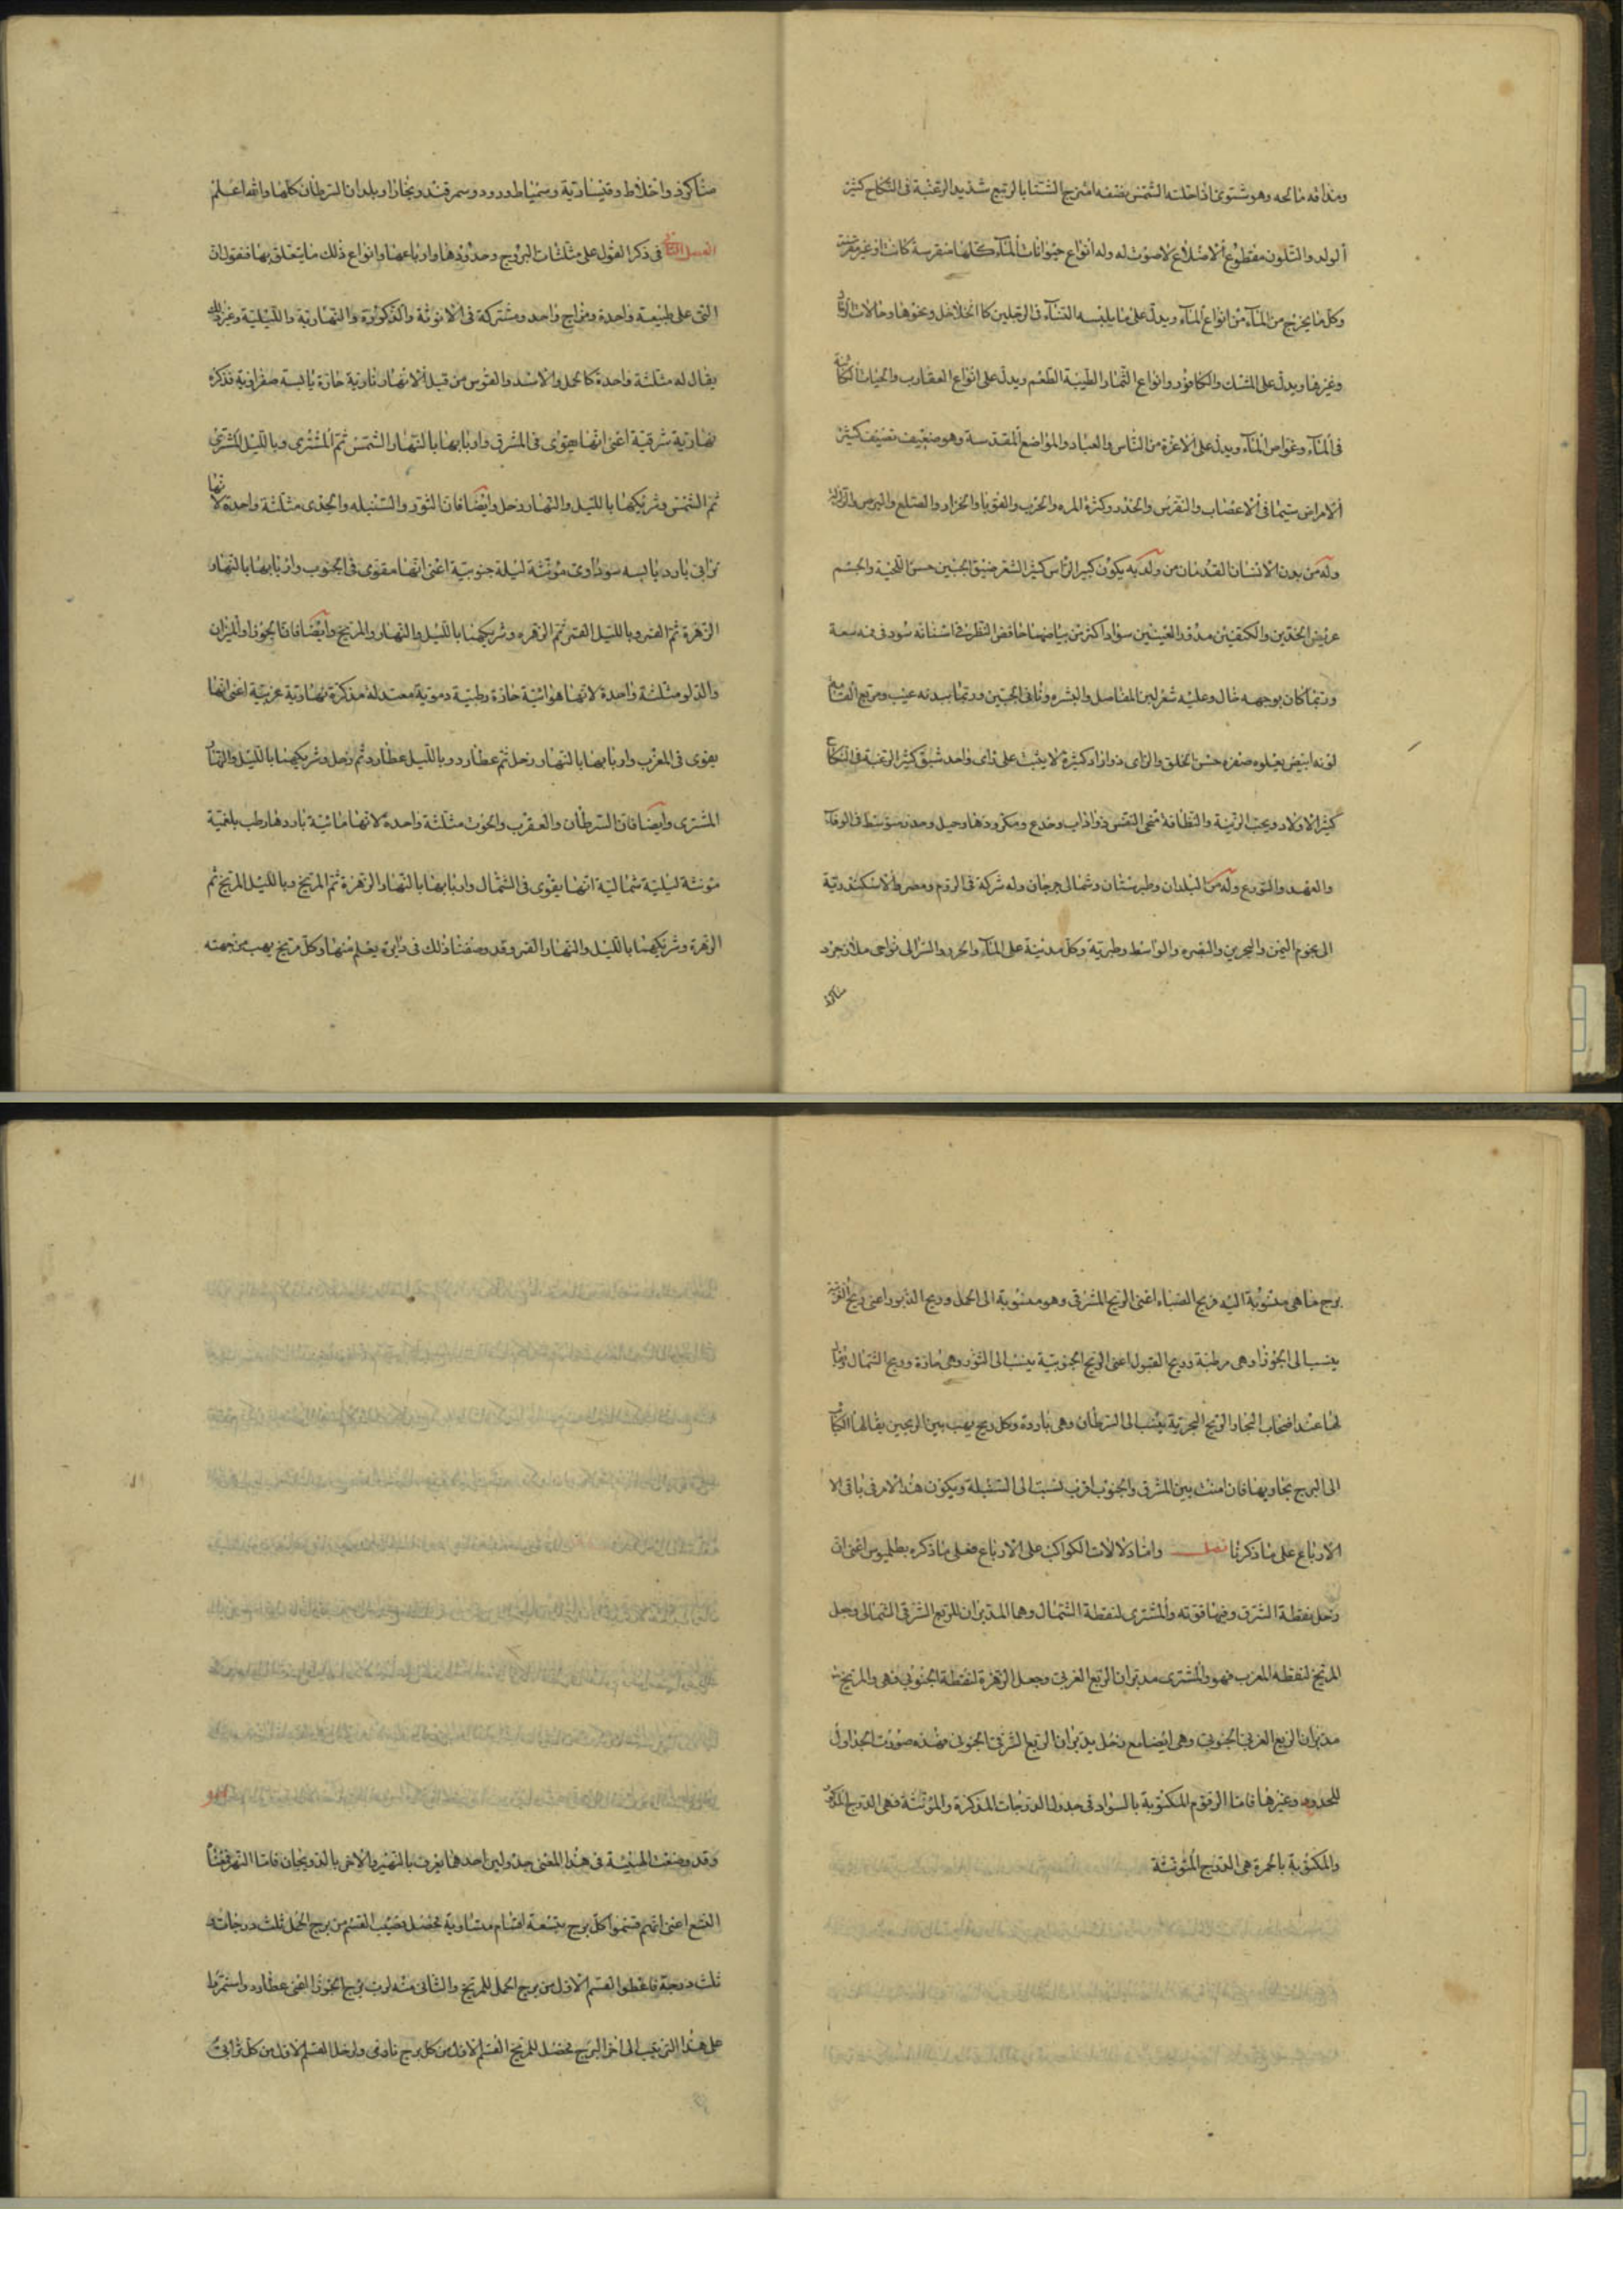 ومذاقه مالحه وهو شتوى فاذا حلته الشمس بنصفه امتزج الشتا بالربيع شديد الرغبة فى النكاح كثير
الولد والتلون مقطوع الاضلاع لا صوت له وله انواع حيوانات المآء كلها مفترسة كانت او غير مفترسة
وكل ما يخرج من المآء من انواع المآء ويدل على ما يلبسه النسآء فى الرجلين كالخلاخل ونحوها وحالات
وغيرها ويدل على المسك والكافور وانواع الثمار الطيبة الطعم ويدل على انواع العقارب والحيات الكائنة
فى المآء وغواص المآء ويدل على الاعزة من الناس والعباد والمواضع المقدسة وهو ضعيف نصيف كثير
الامراض سيما فى الاعصاب والنقرس والخدر وكثرة المره والجرب والقوبا والحزاز والصلع والبرص
وله من بدن الانسان القدمان من ولد به يكون كبير الراس كثير الشعر ضيق الجبين حسن اللحية والجسم
عريض الخدين والكتفين مدور العينين سوادها اكثر من بياضهما خافض النظر فى اسنانه سود فى فمه سعة
وربما كان بوجهه خال وعليه شعر لين المفاصل والبشره ناتى الجبين وربما ببدنه عيب ومربع القامة
لونه ابيض يعلوه صفره حسن الخلق والراى ذو اراد كثيرة لا يثبت على راى واحد شبق كثير الرغبة فى النكاح
كثير الاولاد ويحب الزينة والنظافة سخى النفس ذو اداب وخدع ومكر ودها وحيل وحدة متوسط فى الوفاء
والعهد والتورع وله من البلدان وطبرستان وشمالى جرجان وله شركة فى الروم ومصر والاسكندرية
الى نجوم اليمن والبحرين والبصره والواسط وطبرية وكل مدينة على المآء والخرد والسرا الى نواحى ملازجرد
مناكرد
مناكرد واخلاط وقيسارية وسميساط ودرود وسمرقند وبخارا وبلدان السرطان كلها والله اعلم
الفصل الثانى فى ذكر القول على مثلثات البروج وحدودها وارباعها وانواع ذلك ما يتعلق بها فنقول ان
التى على طبيعة واحدة ومزاج واحد ومشتركة فى الانوثة والذكورة والنهارية والليلية وغير ذلك
يقال له مثلثة واحدة كالحمل والاسد والقوس من قبل لانها نارية حارة يابسة صفراوية مذكرة
نهارية شرقية اعنى انها يقوى فى المشرق واربابها بالنهار الشمس ثم المشترى وبالليل المشترى
ثم الشمس وشريكهما بالليل والنهار زحل وايضا فان الثور والسنبله والجدى مثلثة واحدة لانها
ترابى بارد يابسه سوداوى مؤنثة ليلة جنوبية اعنى انها مقوى فى الجنوب واربابها بالنهار
الزهرة ثم القمر وبالليل القمر ثم الزهره وشريكهما بالليل والنهار والمريخ وايضا فان الجوزا والميزان
والدلو مثلثة واحدة لانها هوائية حارة رطبة دموية معتدلة مذكرة نهارية غربية اعنى انها
يقوى فى المغرب واربابها بالنهار زحل ثم عطارد وبالليل عطارد ثم زحل وشريكهما بالليل والنهار
المشترى وايضا فان السرطان والعقرب والحوت مثلثة واحده لانها مائية باردها رطب بلغمية
مونثة ليلية شمالية انها يقوى فى الشمال واربابها بالنهار الزهرة ثم المريخ وبالليل المريخ ثم
الزهرة وشريكهما بالليل والنهار القمر وقد وصفنا ذلك فى دايرة يعلم منها وكل مريخ يهب من جهته
برج ما هى منسوبة اليه فريح الصباء اعنى الريح المشرقى وهو منسوبة الى الحمل وريح الدبور اعنى ريح الغربية
ينسب الى الجوزا وهى مرطبة وريح القبول اعنى الريح الجنوبية ينسب الى الثور وهى حارة وريح الشمال
لها عند اصحاب البحار الريح البحرية ينسب الى السرطان وهى باردة وكل ريح يهب بين الريحين يقال لها
الى البرج يجاوبها فان امنت بين المشرق والجنوب اقرب لنسبت الى السنبلة ويكون هذا الامر فى باقى الا
الارباع على ما ذكرنا فصل واما دلالات الكواكب على الارباع فعلى ما ذكره بطلميوس اعنى ان
زحل نقطة الشرق وفيها قوته والمشترى لنقطة الشمال وهما المدبران للربع الشرقى الشمالى وجعل
المريخ لنقطه المغرب فهو والمشترى مدبران الربع الغربى وجعل الزهرة لنقطة الجنوبى فهى والمريخ
مدبران الربع الغربى الجنوبى وهى ايضا مع زحل يدبران الربع الشرقى الجنوبى وهذه صورت الجداول
للحدود وغيرها فاما الرقوم المكتوبة بالسواد فى جدول الدرجات المذكرة والمؤنثة فهى الدرج المذكر
والمكتوبة بالحمرة هى الدرج المؤنثة
وقد وضعت الهنية فى هذا المعنى جدولين احدهما يعرف بالنهبر والاخر بالدريجان فاما النهبر
التسع اعنى انهم قسموا كل برج بتسعة اقسام متساوية فحصل نصيب القسم من برج الحمل ثلث درجات و
ثلث درجة فاعطوا القسم الاول من برج الحمل للمريخ والثانى منه لرب برج الجوزا اعنى عطارد واستمروا
على هذا الترتيب الى اخر البرج فحصل للمريخ القسم الاول من كل برج نارى ولزحل القسم الاول من كل ترابى